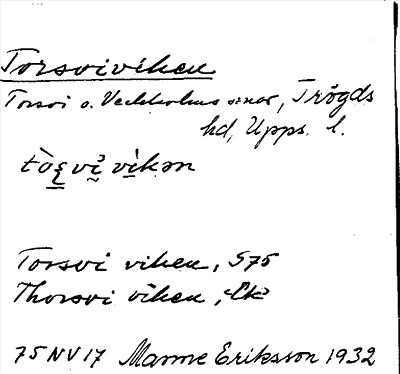 Torsviviken
Torsvi o. Veckholms snar, Trögds
hd, Upps. l.
Torsvi viken, S75
Thorsvi viken, Ek
75 NV 17 Manne Eriksson 1932